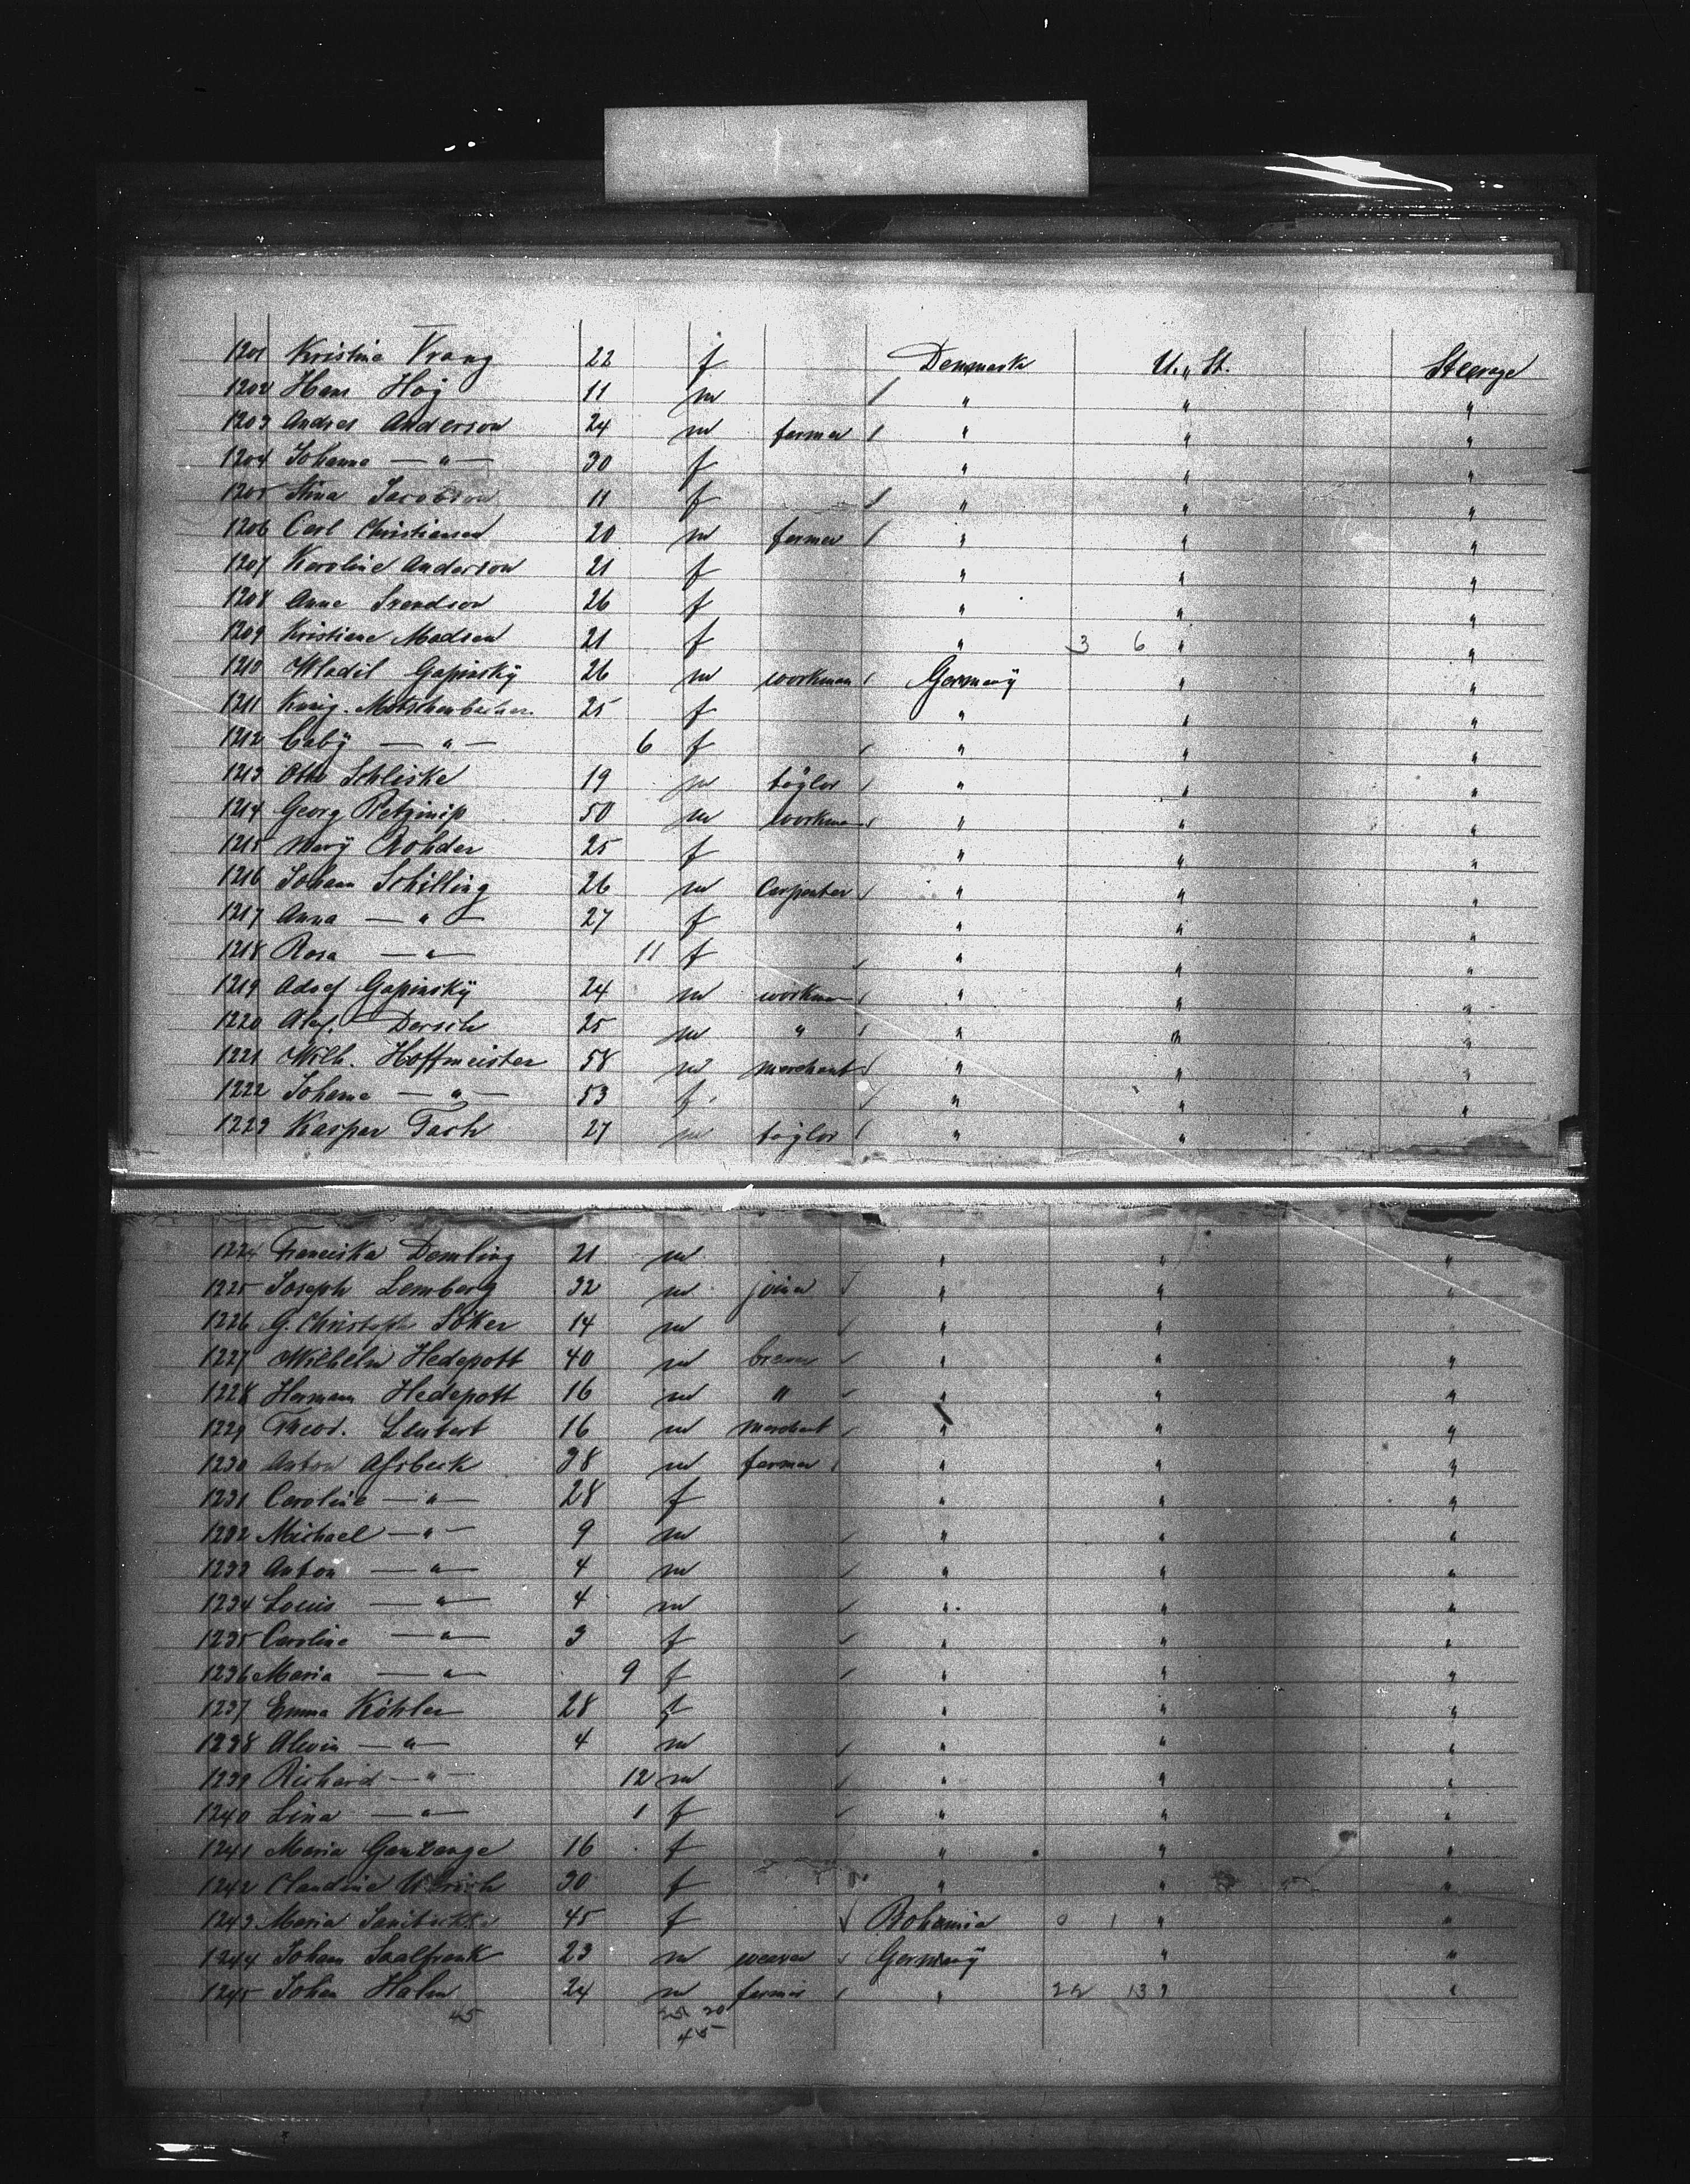 1201 Kristine Vrang 22 f Denmark U. St. Steerage
1202 Hans Hoj 11 m / " " "
1203 Andres Anderson 24 m farmer / " " "
1204 Johanne — " — 30 f " " "
1205 Stina Jacobson 11 f / " " "
1206 Carl Christiansen 20 m farmer / " " "
1207 Karoline Anderson 21 f " " "
1208 Anne Svendson 26 f " " "
1209 Kristiane Madsen 21 f " 3 6 " "
1210 Wladil Gapinsky 26 m workman / Germany " "
1211 Kunig. Motschenbacher 25 f " " "
1212 Baby — " — 6 f / " " "
1213 Otto Schliske 19 m taylor / " " "
1214 Georg 50 m workman / " " "
1215 Mary Rohder 25 f " " "
1216 Johann Schilling 26 m Carpenter / " " "
1217 Anna — " — 27 f " " "
1218 Rosa — " — 11 f / " " "
1219 Gapinsky 24 m workman / " " "
1220 Dersch 25 m " / " " "
1221 Wilh. Hoffmeister 58 m merchant / " " "
1222 Johanna — " — 53 f / " " "
1223 Kaspar Tasch 27 m taylor / " " "
1224 Franciska Demling 21 m " " "
1225 Joseph Lemberg 32 m joiner / " " "
1226 G. Christoph Söker 14 m / " " "
1227 Wilhelm Hedepott 40 m / " " "
1228 Hermann Hedepott 16 m " / " " "
1229 Theod. Leubert 16 m merchant / " " "
1230 Anton Assbeck 38 m farmer / " " "
1231 Caroline — " — 28 f " " "
1232 Michael — " — 9 m / " " "
1233 Anton — " — 4 m / " " "
1234 Louis — " — 4 m / " " "
1235 Caroline — " — 3 f / " " "
1236 Maria — " — 9 f / " " "
1237 Emma Köhler 28 f " " "
1238 Alwin — " — 4 m / " " "
1239 Richard — " — 12 m / " " "
1240 Lina — " — 1 f / " " "
1241 Maria Ganzange 16 f " " "
1242 Claudine 30 f " " "
1243 Maria 45 f / Bohemia 0 1 " "
1244 Johann Saalfrank 23 m weaver / Germany " "
1245 Johan Halm 24 m farmer / " 22 13 " "
45 25 20
45